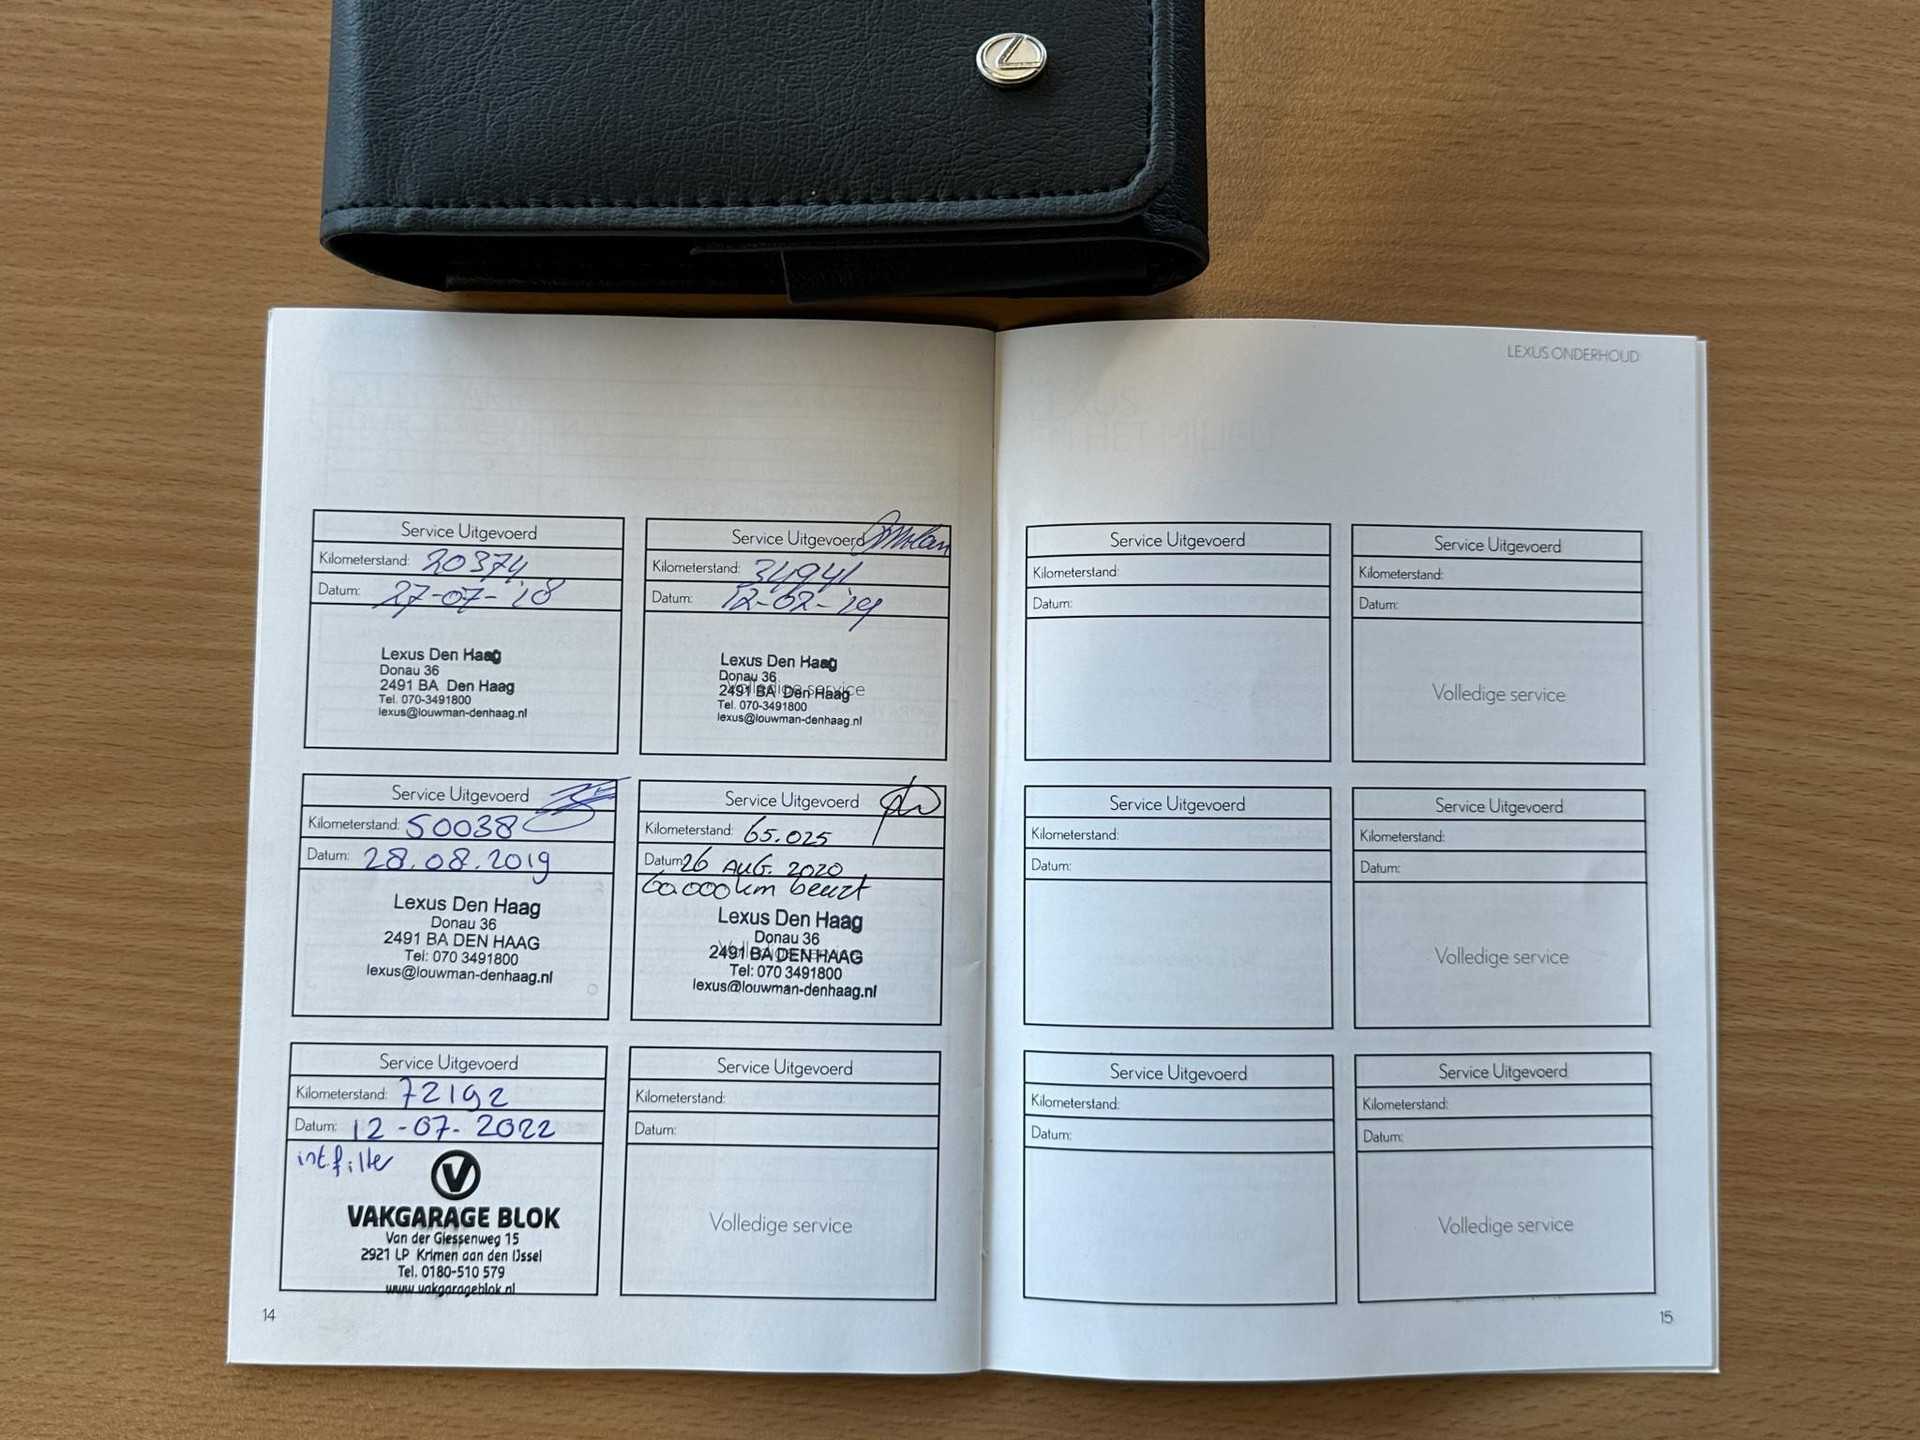 LEXUS ONDERHOUD
Service Uitgevoerd
Kilometerstand: 20374
Datum: 27-07-'18
Lexus Den Haag
Donau 36
2491 BA Den Haag
Tel. 070-3491800
lexus@louwman-denhaag.nl
Service Uitgevoerd
Kilometerstand: 34941
Datum: 12-02-'19
Volledige service
Lexus Den Haag
Donau 36
2491 BA Den Haag
Tel. 070-3491800
lexus@louwman-denhaag.nl
Service Uitgevoerd
Kilometerstand: 50038
Datum: 28.08.2019
Lexus Den Haag
Donau 36
2491 BA DEN HAAG
Tel: 070 3491800
lexus@louwman-denhaag.nl
Service Uitgevoerd
Kilometerstand: 65.025
Datum: 26 AUG. 2020
60.000 km beurt
Lexus Den Haag
Donau 36
2491 BA DEN HAAG
Tel: 070 3491800
lexus@louwman-denhaag.nl
Service Uitgevoerd
Kilometerstand: 72192
Datum: 12-07-2022
int.filter
VAKGARAGE BLOK
Van der Giessenweg 15
2921 LP Krimen aan den IJssel
Tel. 0180-510 579
www.vakgarageblok.nl
Service Uitgevoerd
Kilometerstand:
Datum:
Volledige service
14
Service Uitgevoerd
Kilometerstand:
Datum:
Service Uitgevoerd
Kilometerstand:
Datum:
Volledige service
Service Uitgevoerd
Kilometerstand:
Datum:
Service Uitgevoerd
Kilometerstand:
Datum:
Volledige service
Service Uitgevoerd
Kilometerstand:
Datum:
Service Uitgevoerd
Kilometerstand:
Datum:
Volledige service
15